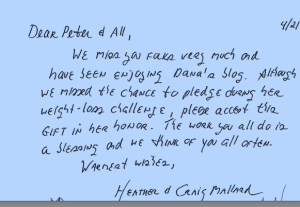 4/21
Dear Peter & All,
We miss you folks very much and
have been enjoying Dana's blog. Although
we missed the chance to pledge during her
weight-loss challenge, please accept this
gift in her honor. The work you all do is
a blessing and we think of you all often.
Warmest wishes,
Heather & Craig Mallard